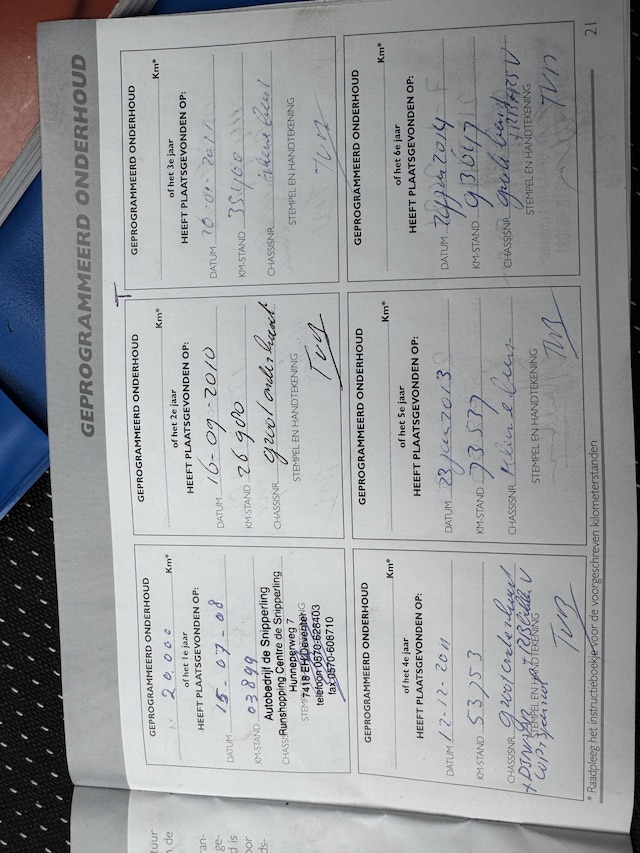 GEPROGRAMMEERD ONDERHOUD
GEPROGRAMMEERD ONDERHOUD
20.000 Km*
of het 1e jaar
HEEFT PLAATSGEVONDEN OP:
DATUM 15-07-08
KM-STAND 03899
Autobedrijf de Snipperling
Runshopping Centre de Snipperling
Hunneperweg 7
7418 EH Deventer
telefoon 0570-628403
fax 0570-608710
GEPROGRAMMEERD ONDERHOUD
Km*
of het 2e jaar
HEEFT PLAATSGEVONDEN OP:
DATUM 16-09-2010
KM-STAND 26900
CHASSISNR. groot onderhoud
STEMPEL EN HANDTEKENING
GEPROGRAMMEERD ONDERHOUD
Km*
of het 3e jaar
HEEFT PLAATSGEVONDEN OP:
DATUM
KM-STAND
CHASSISNR.
STEMPEL EN HANDTEKENING
GEPROGRAMMEERD ONDERHOUD
Km*
of het 4e jaar
HEEFT PLAATSGEVONDEN OP:
DATUM 12-12-2011
KM-STAND 53753
CHASSISNR. groot onderhoud
STEMPEL EN HANDTEKENING
GEPROGRAMMEERD ONDERHOUD
Km*
of het 5e jaar
HEEFT PLAATSGEVONDEN OP:
DATUM 23 jan 2013
KM-STAND 73537
CHASSISNR. kleine beurt
STEMPEL EN HANDTEKENING
GEPROGRAMMEERD ONDERHOUD
Km*
of het 6e jaar
HEEFT PLAATSGEVONDEN OP:
DATUM 2014
KM-STAND 93047
CHASSISNR. grote beurt
STEMPEL EN HANDTEKENING
* Raadpleeg het instructieboekje voor de voorgeschreven kilometerstanden
21